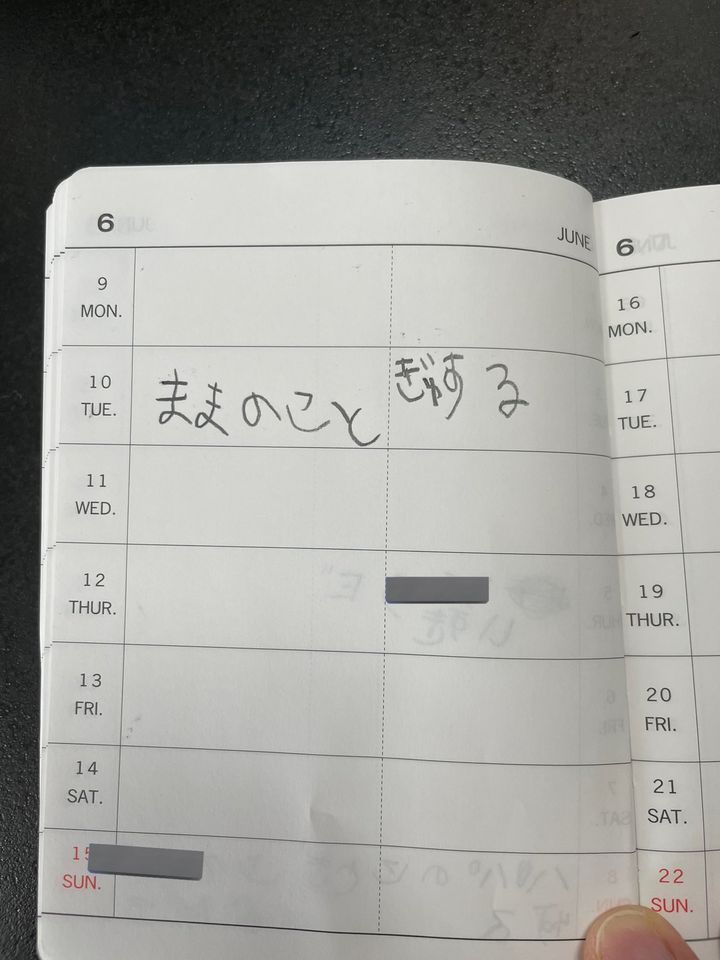 6 JUNE
9 MON.
10 TUE. ままのこと ぎゅする
11 WED.
12 THUR.
13 FRI.
14 SAT.
15 SUN.
6
16 MON.
17 TUE.
18 WED.
19 THUR.
20 FRI.
21 SAT.
22 SUN.